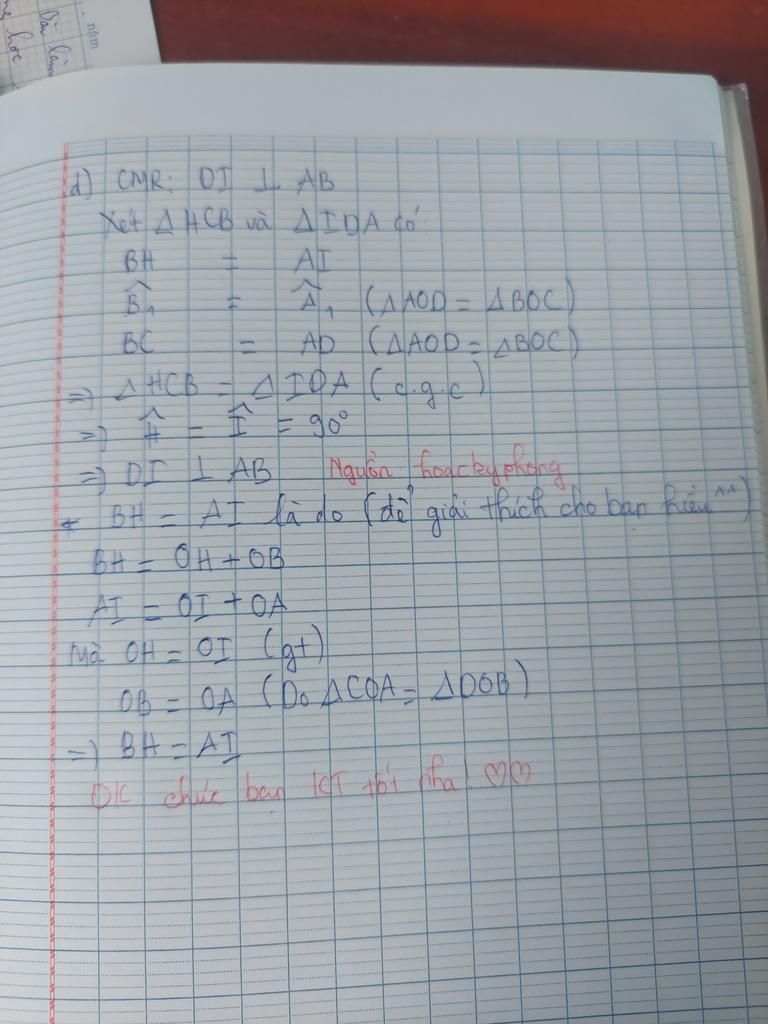 năm
Bài làm
học
d) CMR: DI ⊥ AB
Xét △HCB và △IDA có
BH = AI
B̂₁ = Â₁ (△AOD = △BOC)
BC = AD (△AOD = △BOC)
=> △HCB = △IDA (c.g.c)
=> Ĥ = Î = 90°
=> DI ⊥ AB Nguồn hoackyphong
* BH = AI là do (để giải thích cho bạn hiểu ^^)
BH = OH + OB
AI = OI + OA
Mà OH = OI (gt)
OB = OA (Do △COA = △DOB)
=> BH = AI
OK chúc bạn KT tốt nha! ♡♡